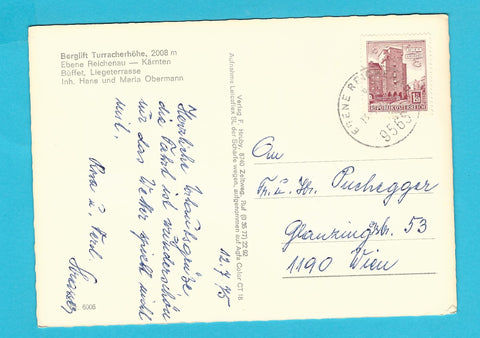 Berglift Turracherhöhe, 2008 m
Ebene Reichenau — Kärnten
Büffet, Liegeterrasse
Inh. Hans und Maria Obermann
12.7.75
Herzliche Urlaubsgrüße
die Fahrt ist wunderschön
nur das Wetter spielt nicht
mit.
Rosa u. Ferd.
6006
Verlag F. Hruby, 8740 Zeltweg, Ruf (0 35 77) 22 92
Aufnahme Leicaflex SL der Schärfe wegen, aufgenommen auf Agfa Color CT 18
REPUBLIK ÖSTERREICH
EBENE RE
9565
An
Fr. u. Hr. Puchegger
Glanzingstr. 53
1190 Wien